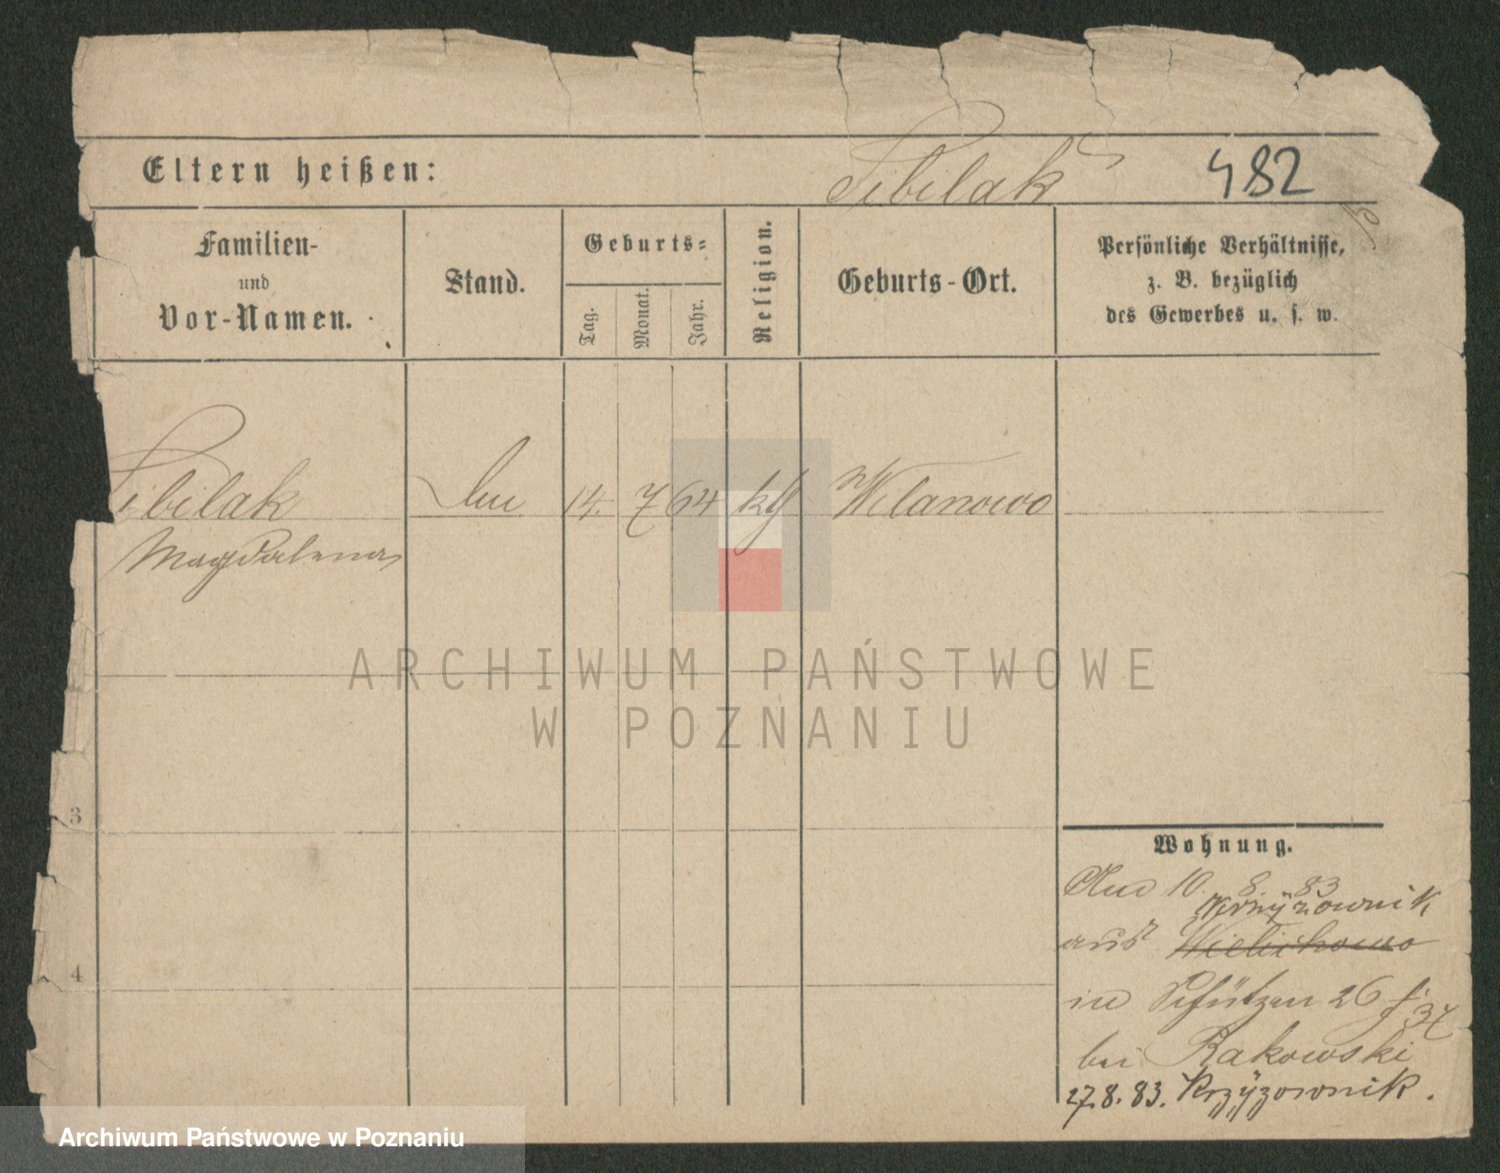 Eltern heißen: Sibilak 482
Familien-
und
Vor-Namen.
Stand.
Geburts-
Tag.
Monat.
Jahr.
Religion.
Geburts-Ort.
Persönliche Verhältnisse,
z. B. bezüglich
des Gewerbes u. s. w.
Sibilak 14. 7 64 kth Wilanowo
Magdalena
ARCHIWUM PAŃSTWOWE
W POZNANIU
3
Wohnung.
10. 8. 83
Krzyżownik
aus Wielichowo
4
in Schützen 26
37
bei Rakowski
27.8.83. Krzyżownik.
Archiwum Państwowe w Poznaniu